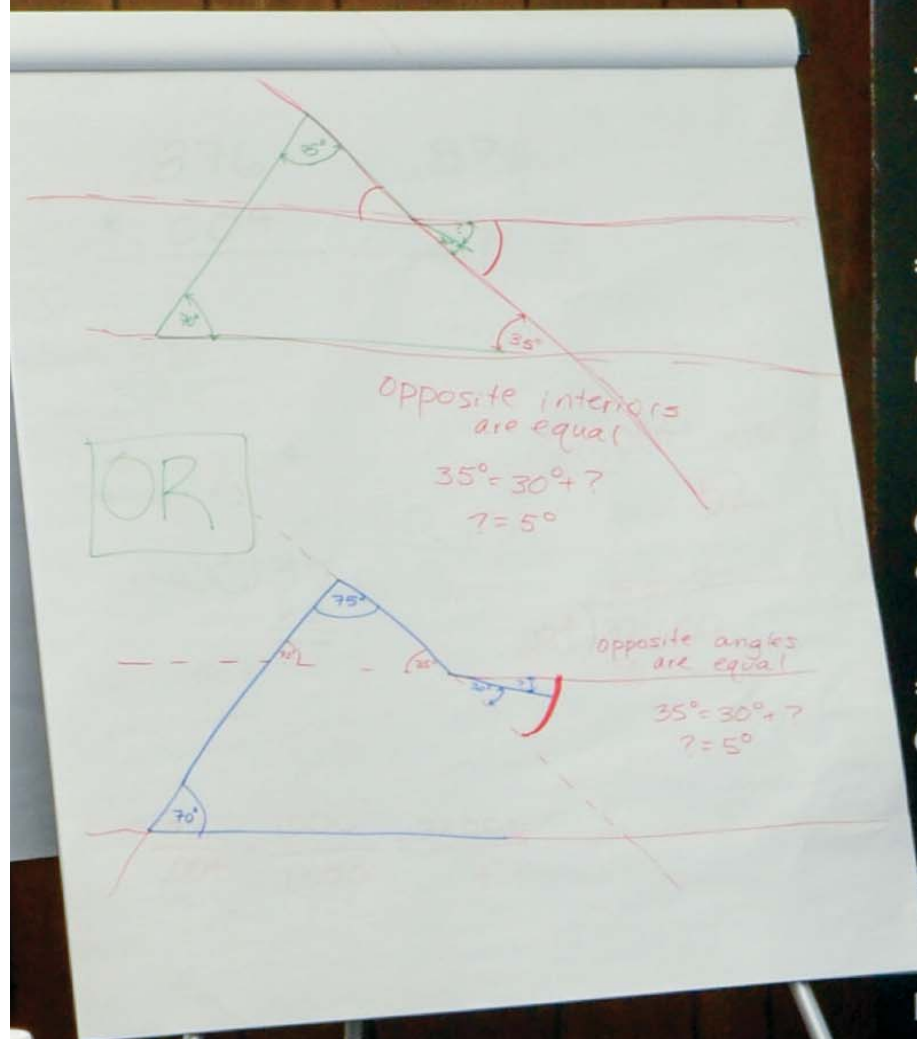 75°
?
70°
35°
opposite interiors
are equal
35° = 30° + ?
? = 5°
OR
75°
35°
30°
?
opposite angles
are equal
35° = 30° + ?
? = 5°
70°